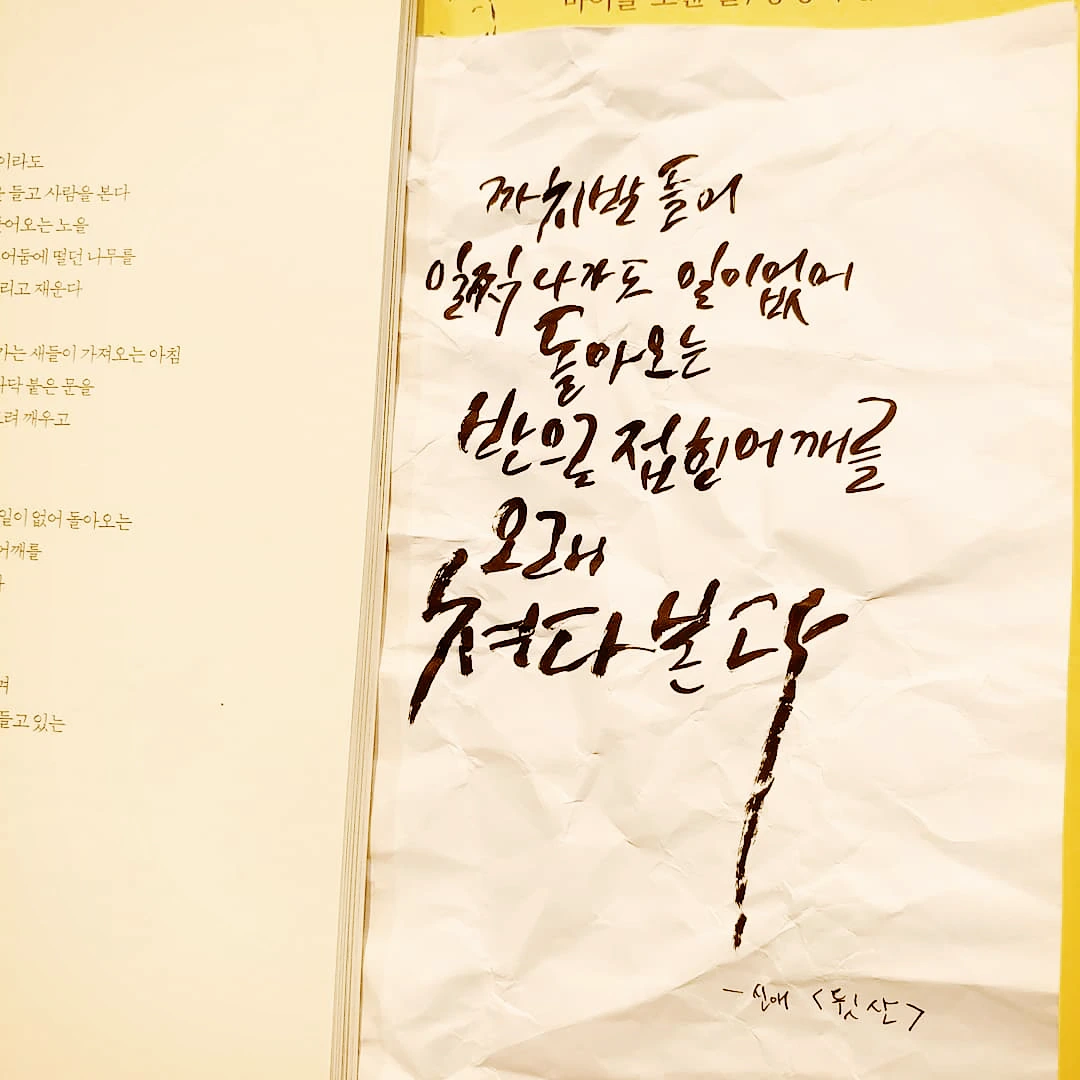 이라도
들고 사람을 본다
노을
어둠에 떨던 나무를
리고 재운다
가는 새들이 가져오는 아침
닥 붙은 문을
려 깨우고
일이 없어 돌아오는
어깨를
며
들고 있는
까치발 들어
일찍 나가도 일이 없어
돌아오는
반으로 접힌 어깨를
오래
쳐다본다
- 신애 <뒷산>